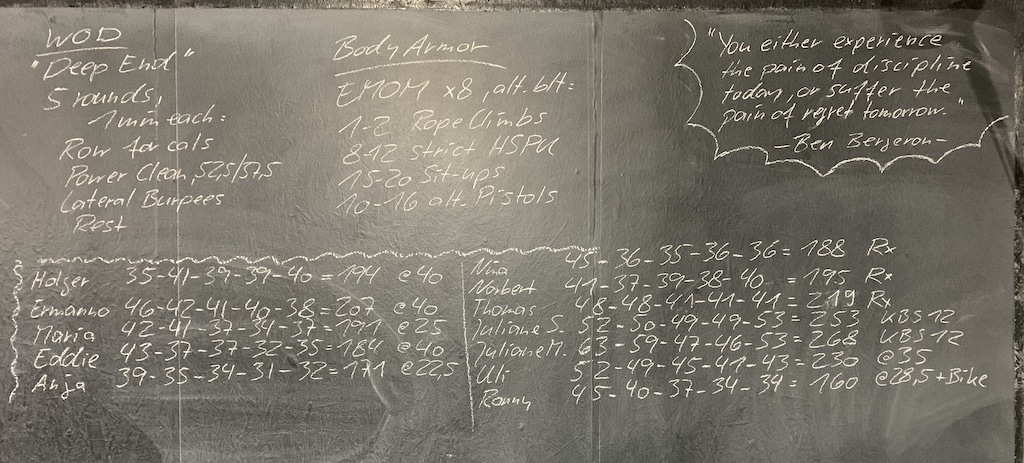 WOD
"Deep End"
5 rounds,
1 min each:
Row for cals
Power Clean, 52,5/37,5
Lateral Burpees
Rest
Body Armor
EMOM x8, alt. btt:
1-2 Rope Climbs
8-12 strict HSPU
15-20 Sit-ups
10-16 alt. Pistols
"You either experience
the pain of discipline
today, or suffer the
pain of regret tomorrow."
- Ben Bergeron -
Holger 35-41-39-39-40=194 @40
Ermanno 46-42-41-40-38=207 @40
Maria 42-41-37-34-37=191 @25
Eddie 43-37-37-32-35=184 @40
Anja 39-35-34-31-32=171 @22,5
Nina 45-36-35-36-36=188 Rx
Norbert 41-37-39-38-40=195 Rx
Thomas 48-48-41-41-41=219 Rx
Juliane S. 52-50-49-49-53=253 KBS 12
Juliane M. 63-59-47-46-53=268 KBS 12
Uli 52-49-45-41-43=230 @35
Ronny 45-40-37-34-34=160 @28,5+Bike